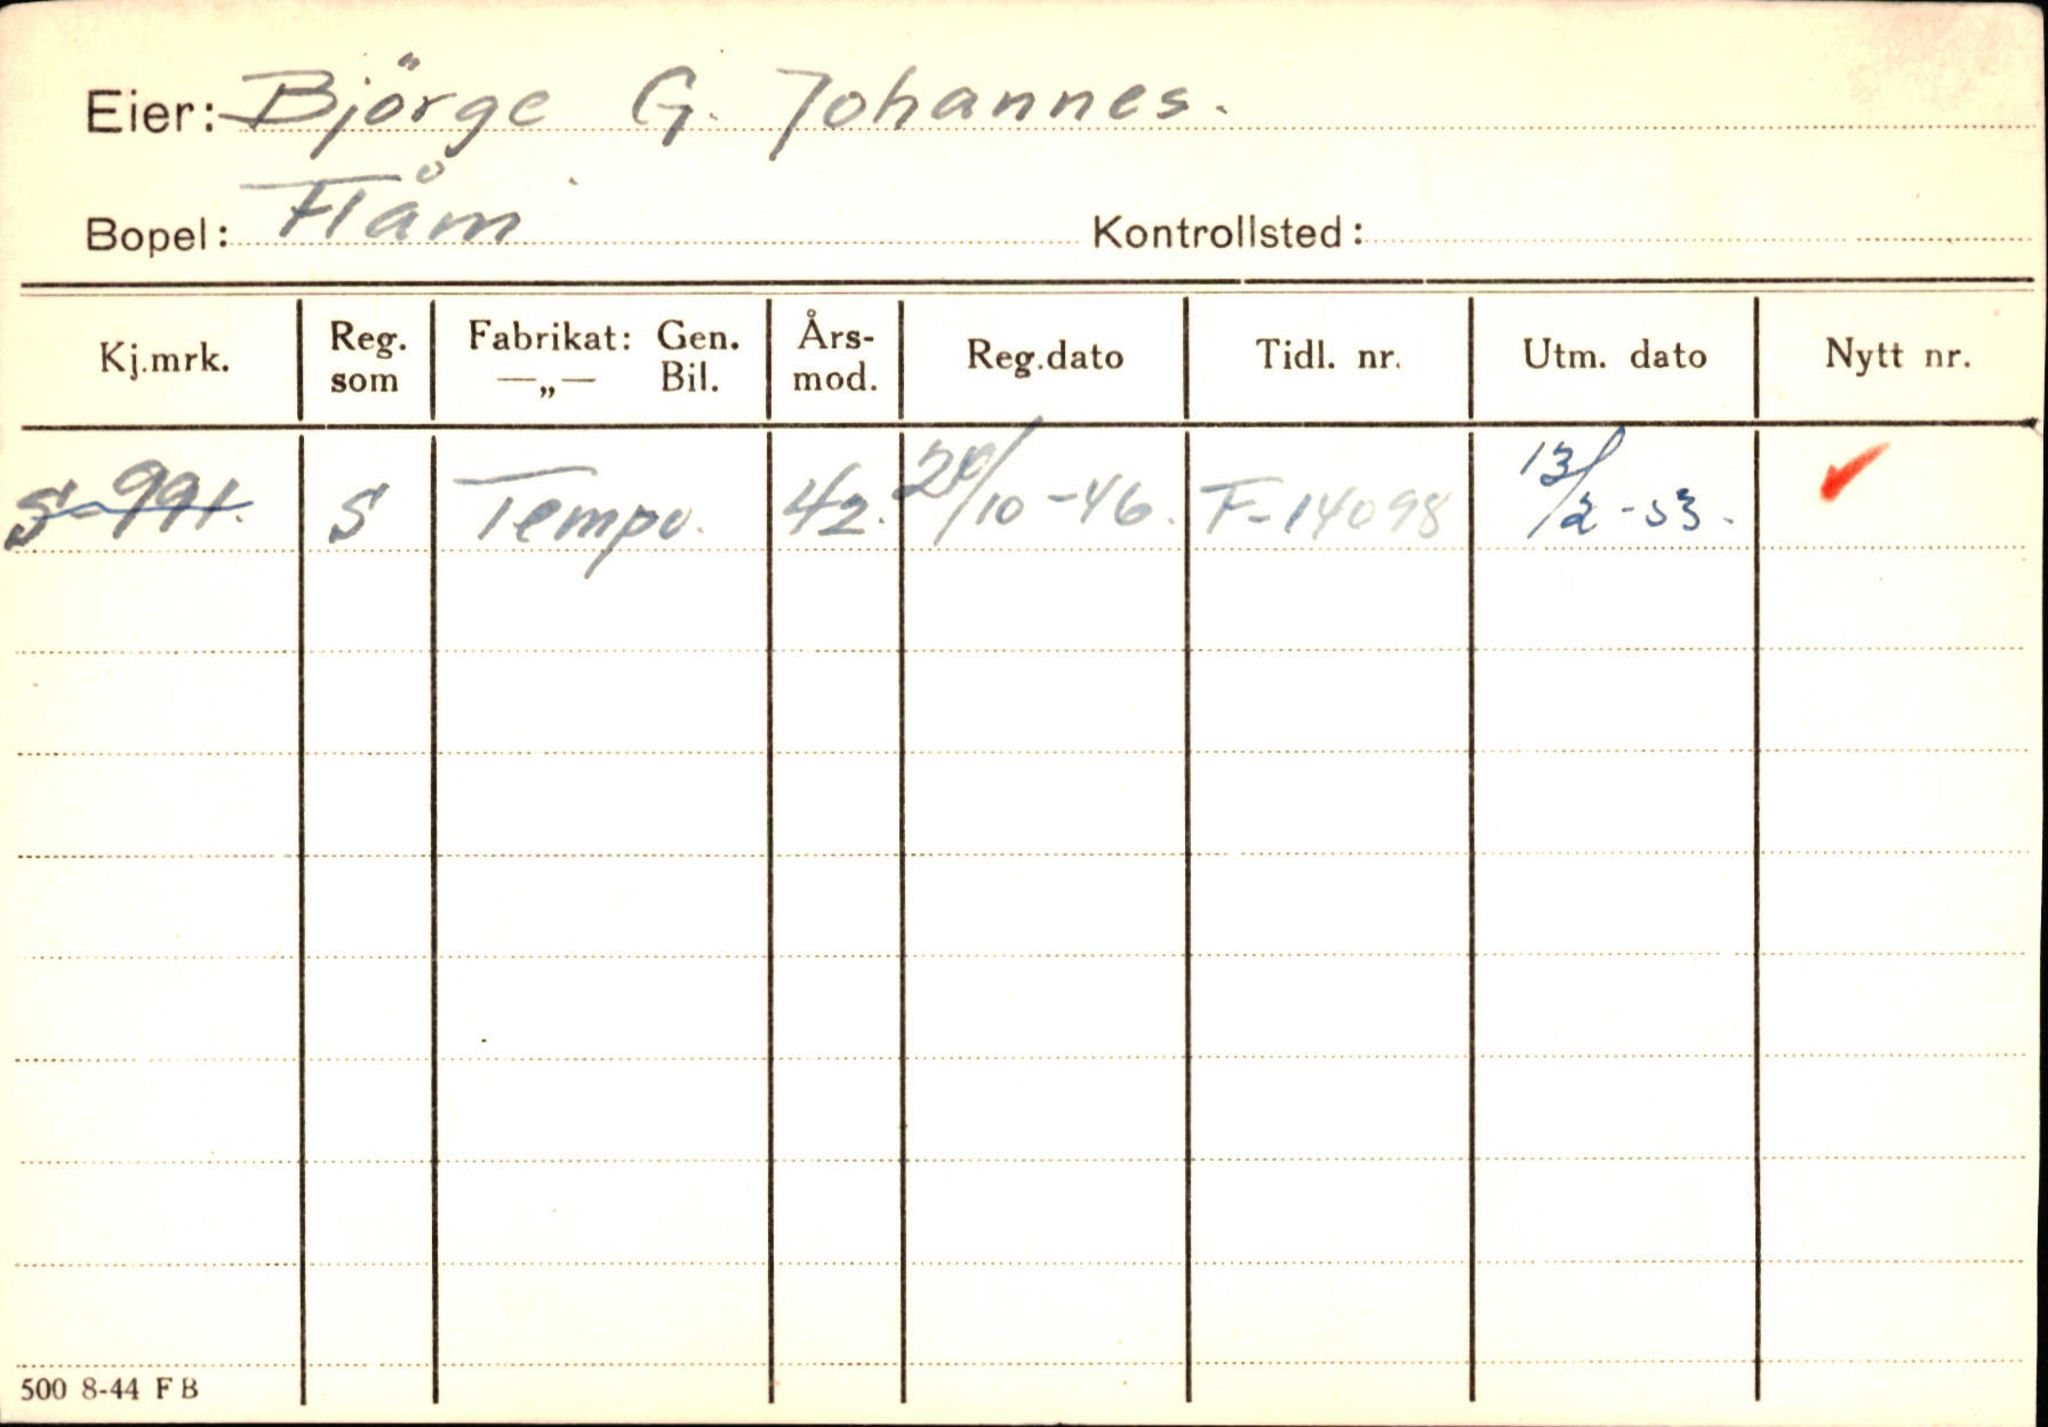 Eier: Björge G. Johannes.
Bopel: Flåm Kontrollsted:
Kj.mrk. Reg. som Fabrikat: Gen. —„— Bil. Års- mod. Reg.dato Tidl. nr. Utm. dato Nytt nr.
S-991. S Tempo. 42. /10-46. F-14098 13/2-53.
500 8-44 F B